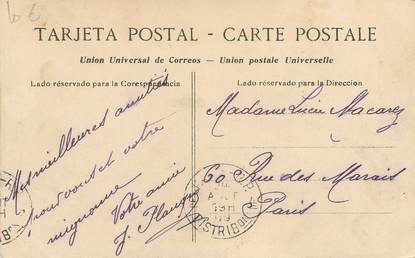 10 €
TARJETA POSTAL - CARTE POSTALE
Union Universal de Correos — Union postale Universelle
Lado réservado para la Correspondencia
Lado réservado para la Direccion
Mes meilleures amitiés
pour vous et votre
mignonne
Votre amie
Madame Lucie Macarez
60 Rue des Marais
Paris
DISTRIBON